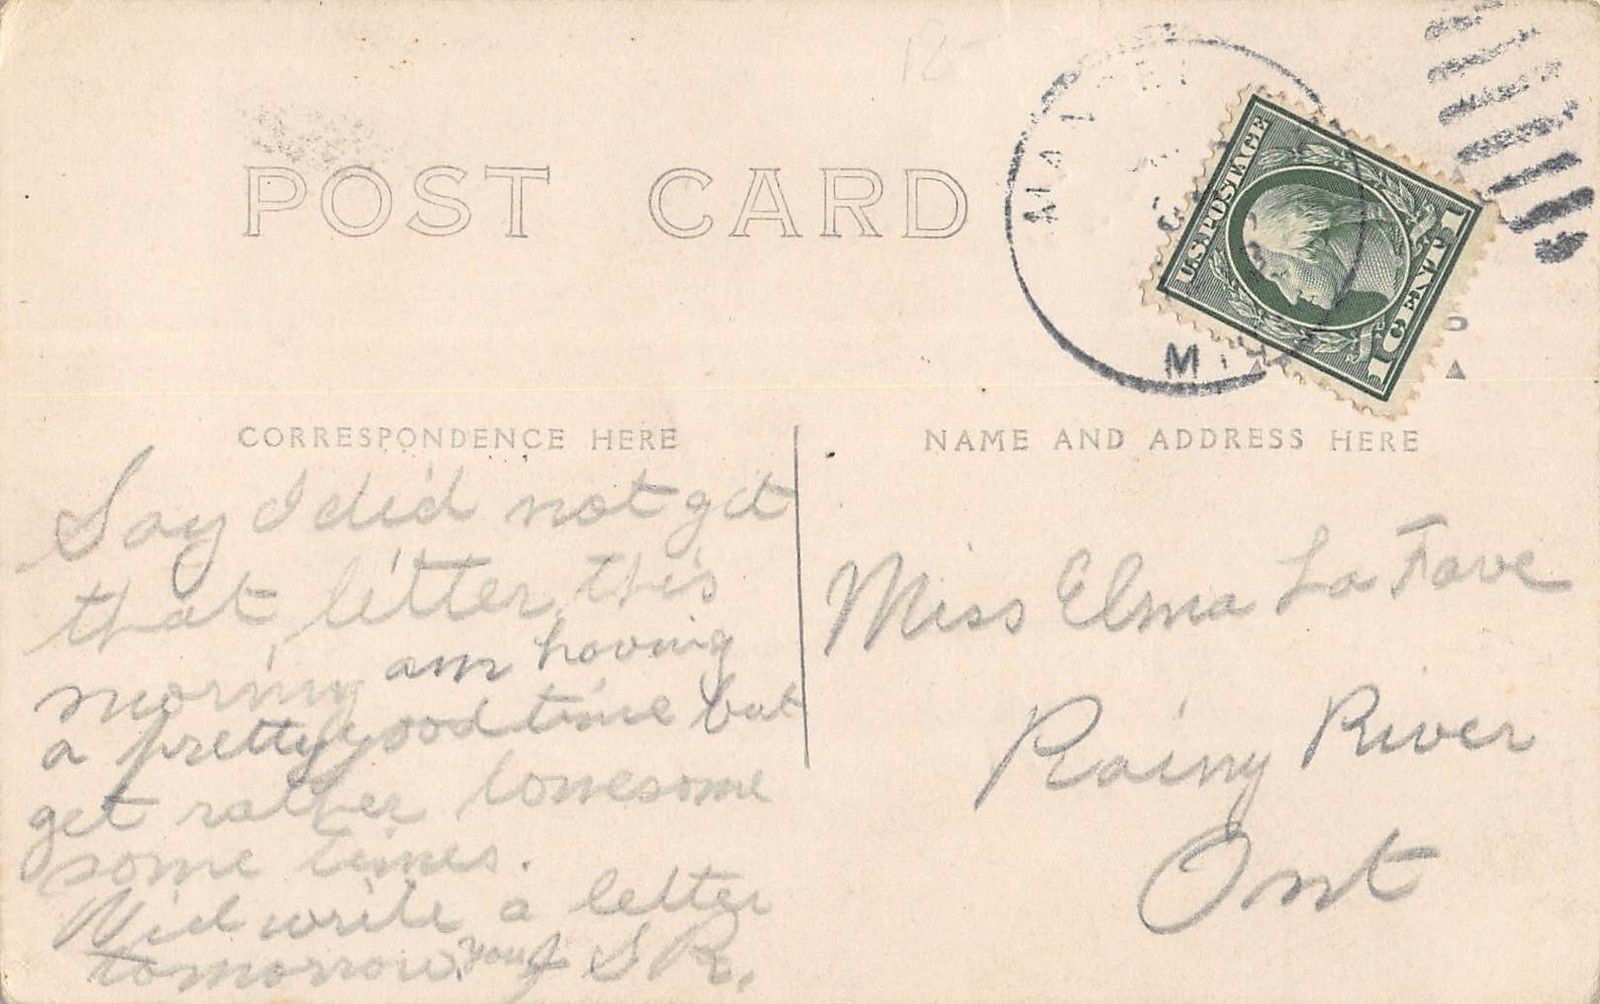 POST CARD
U.S. POSTAGE
1 CENT 1
MINN
CORRESPONDENCE HERE
Say I did not get
that letter this
morning am having
a pretty good time but
get rather lonesome
some times.
Will write a letter
tomorrow. S R.
NAME AND ADDRESS HERE
Miss Elma La Fave
Rainy River
Ont